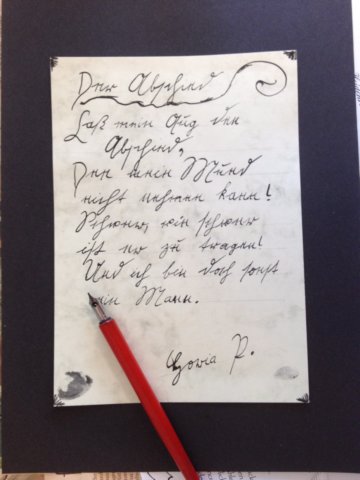 Der Abschied
Laß mein Aug den
Abschied,
Den mein Mund
nicht nehmen kann!
Schwer, wie schwer
ist er zu tragen!
Und ich bin doch sonst
ein Mann.
P.